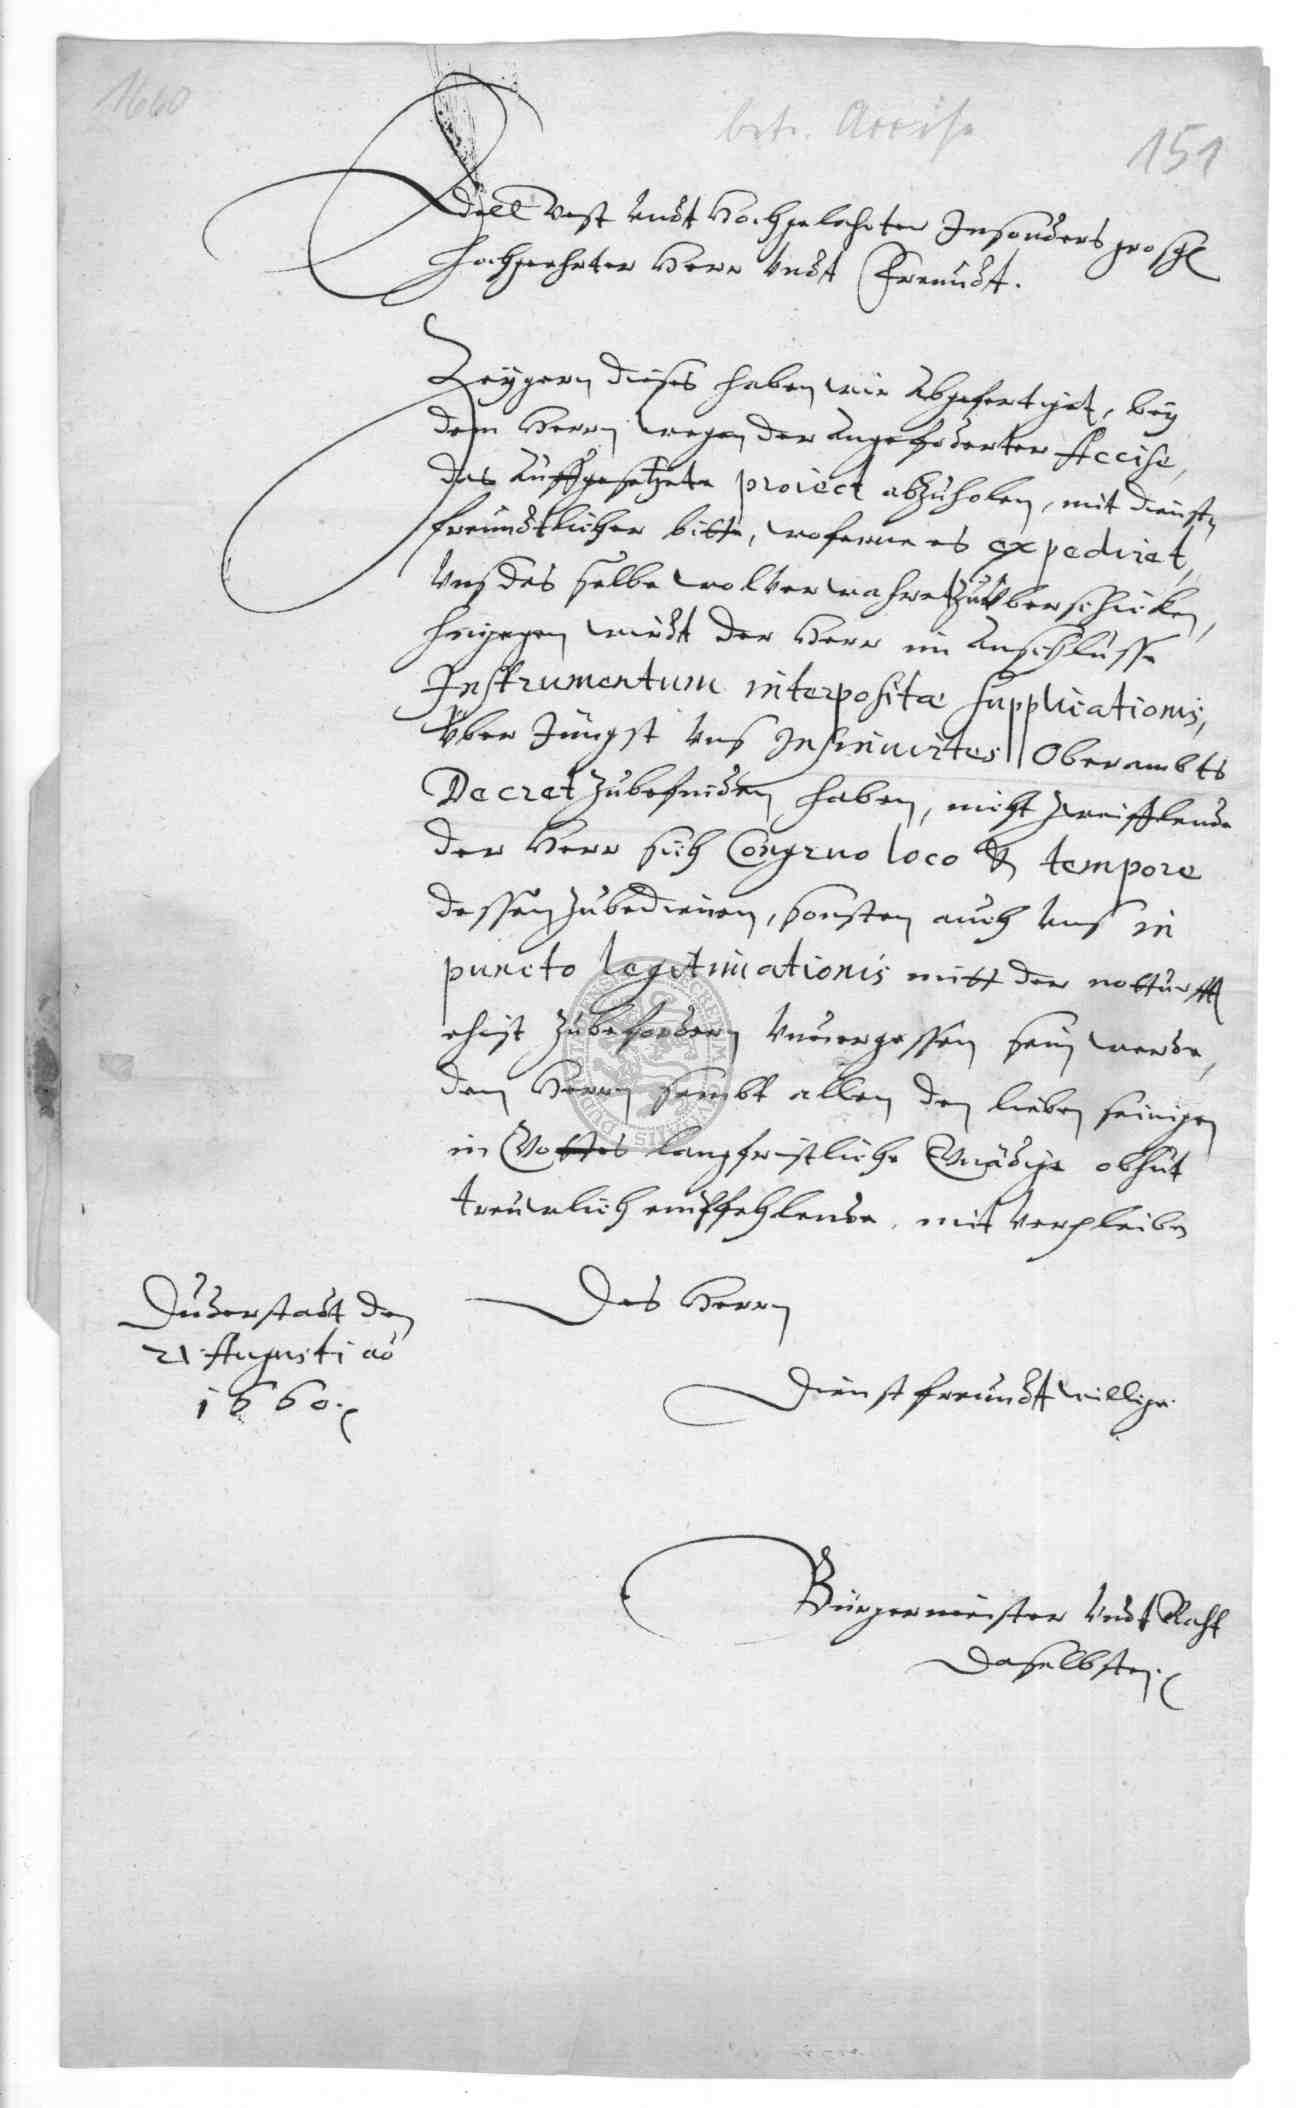 1660
betr. Accise
151
Edell Vest undt Hochgelahrter Insonders großg
Hochgeehrter Herr undt Freundt.
Zeygern dieses haben wir abgefertiget, bey
dem Herrn wegen der angefoderten Accise,
das auffgesetzete proiect abzuholen, mit dienst
freundtlicher bitte, woferne es expediret,
Uns das selbe wol verwahret zu überschicken,
hingegen wirdt der Herr im anschlusse
Instrumentum interpositæ supplicationis,
über Jüngst Uns Insinuirtes Oberambts
Decret zubefinden haben, nicht zweifflende
der Herr sich Congruo loco & tempore
dessen zubedienen, sonsten auch Uns in
puncto legitimationis mitt der notturfft
ehist zubefordern Unvergessen sein werde,
den Herrn sambt allen den lieben seinigen
in Gottes langfristliche Gnädige obhut
treuwlich empfehlende, mit verpleiben
Des Herrn
Duderstadt den
21 Augusti ao
1660.
Dienstfreundtwillige
Bürgermeister Undt Raht
daselbsten.